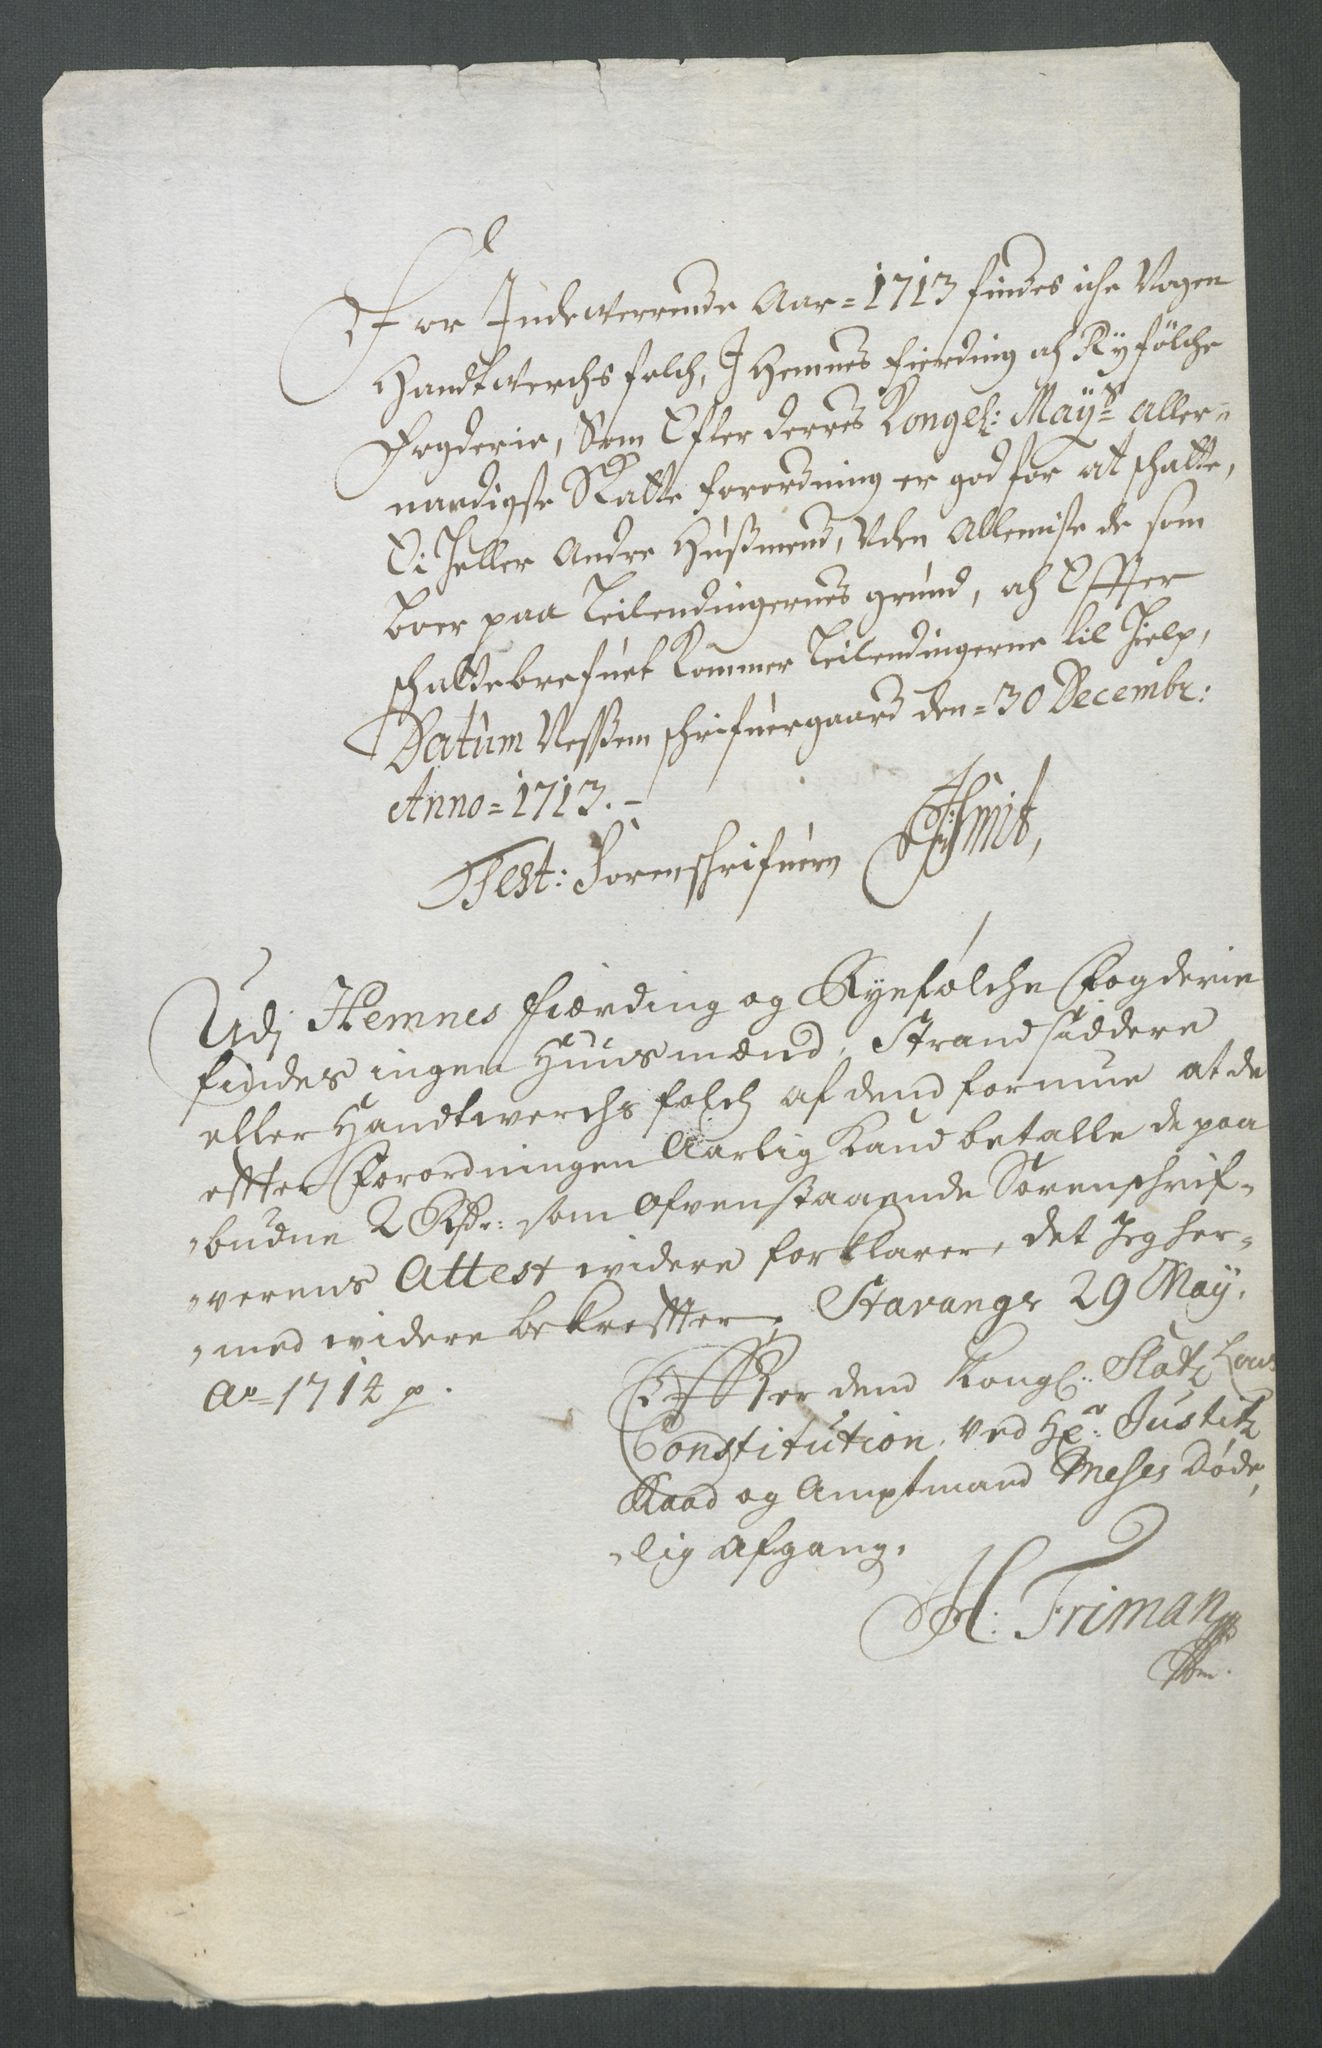 For Indeverrende Aar = 1713 findes iche Nogen
Handtwerchs folch, J Hemnes fierding och Ryfölche
Fogderie, Som Efter derres Kongel: Mayts aller=
naadigste Skatte forordning er god for at schatte,
Ei heller Andre Hussmend, Uden Allemiste de som
boer paa Leilendingernes grund, och Effter
schattebrefuet Kommer Leilendingerne til Hielp,
Datum Nessem schrifuergaard den = 30 Decembr:
Anno = 1713. –
Test: Sorenschrifuern Smit,
Udj Hemnes fierding og Ryefolche Fogderie
findes ingen Huusmænd, Strandsiddere
eller Handtwerchs folch af dend formue at de
efter Forordningen Aarlig Kand betalle de paa
„budne 2 Rdr: som Ofvenstaaende Sorenschrif„
„verens Attest widere forklarer, det Jeg her„
„med widere bekreffter, Stavanger 29 May.
Ao = 1714 p.
Effter dend Kongl: Slotz Lovs
Constitution, ved Hr: Justitz
Raad og Amptmand Meses Döde„
„lig Afgang.
H: Friman